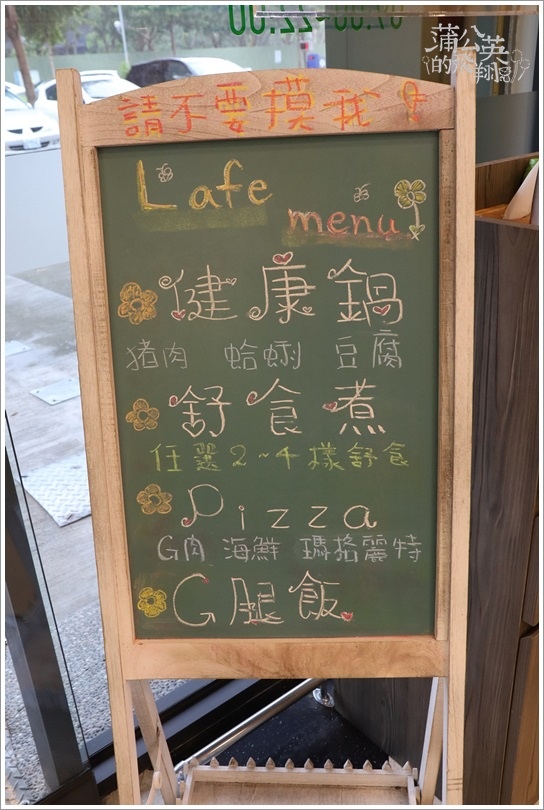 07:00~22:00
蒲公英
的
請不要摸我！
Lafe
menu
健康鍋
猪肉 蛤蜊 豆腐
舒食煮
任選2~4樣舒食
Pizza
G肉 海鮮 瑪格麗特
G腿飯